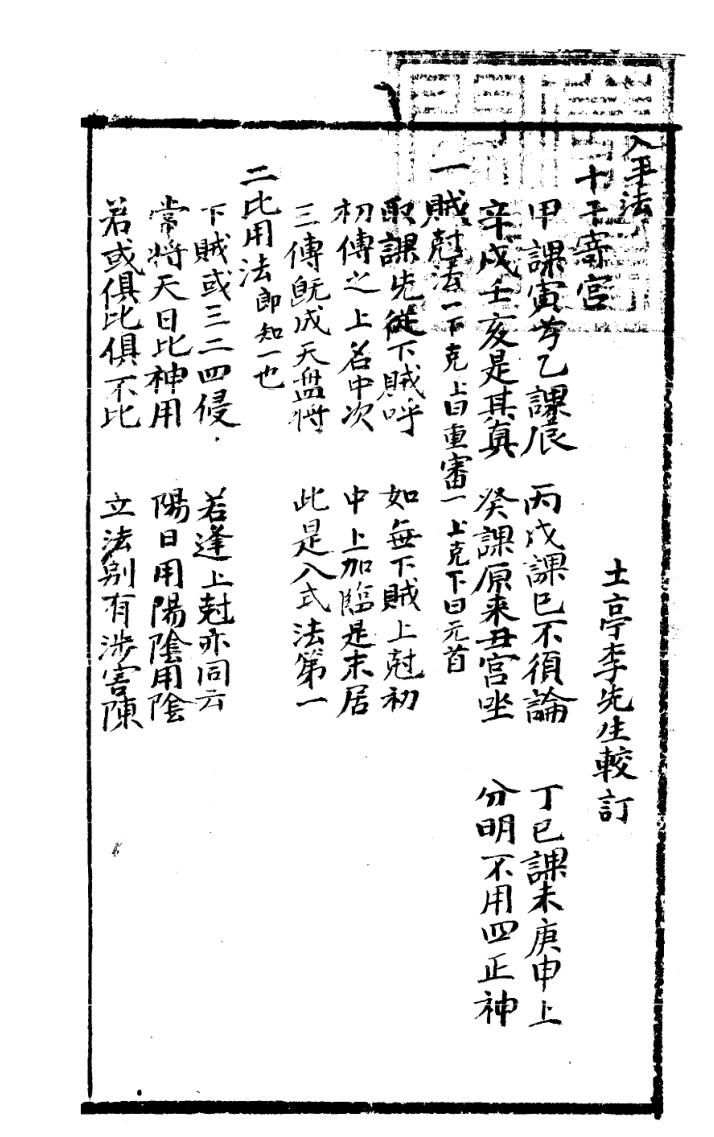 入手法
十干寄宮
土亭李先生較訂
甲課寅兮乙課辰 丙戊課巳不須論 丁己課未庚申上
辛戌壬亥是其真 癸課原来丑宮坐 分明不用四正神
一賊尅法 一下克上曰重審一上克下曰元首
取課先從下賊呼 如無下賊上尅初
初傳之上名中次 中上加臨是末居
三傳旣成天盤將 此是入式法第一
二比用法 即知一也
下賊或三二四侵 若逢上尅亦同云
常將天日比神用 陽日用陽陰用陰
若或俱比俱不比 立法别有涉害陳